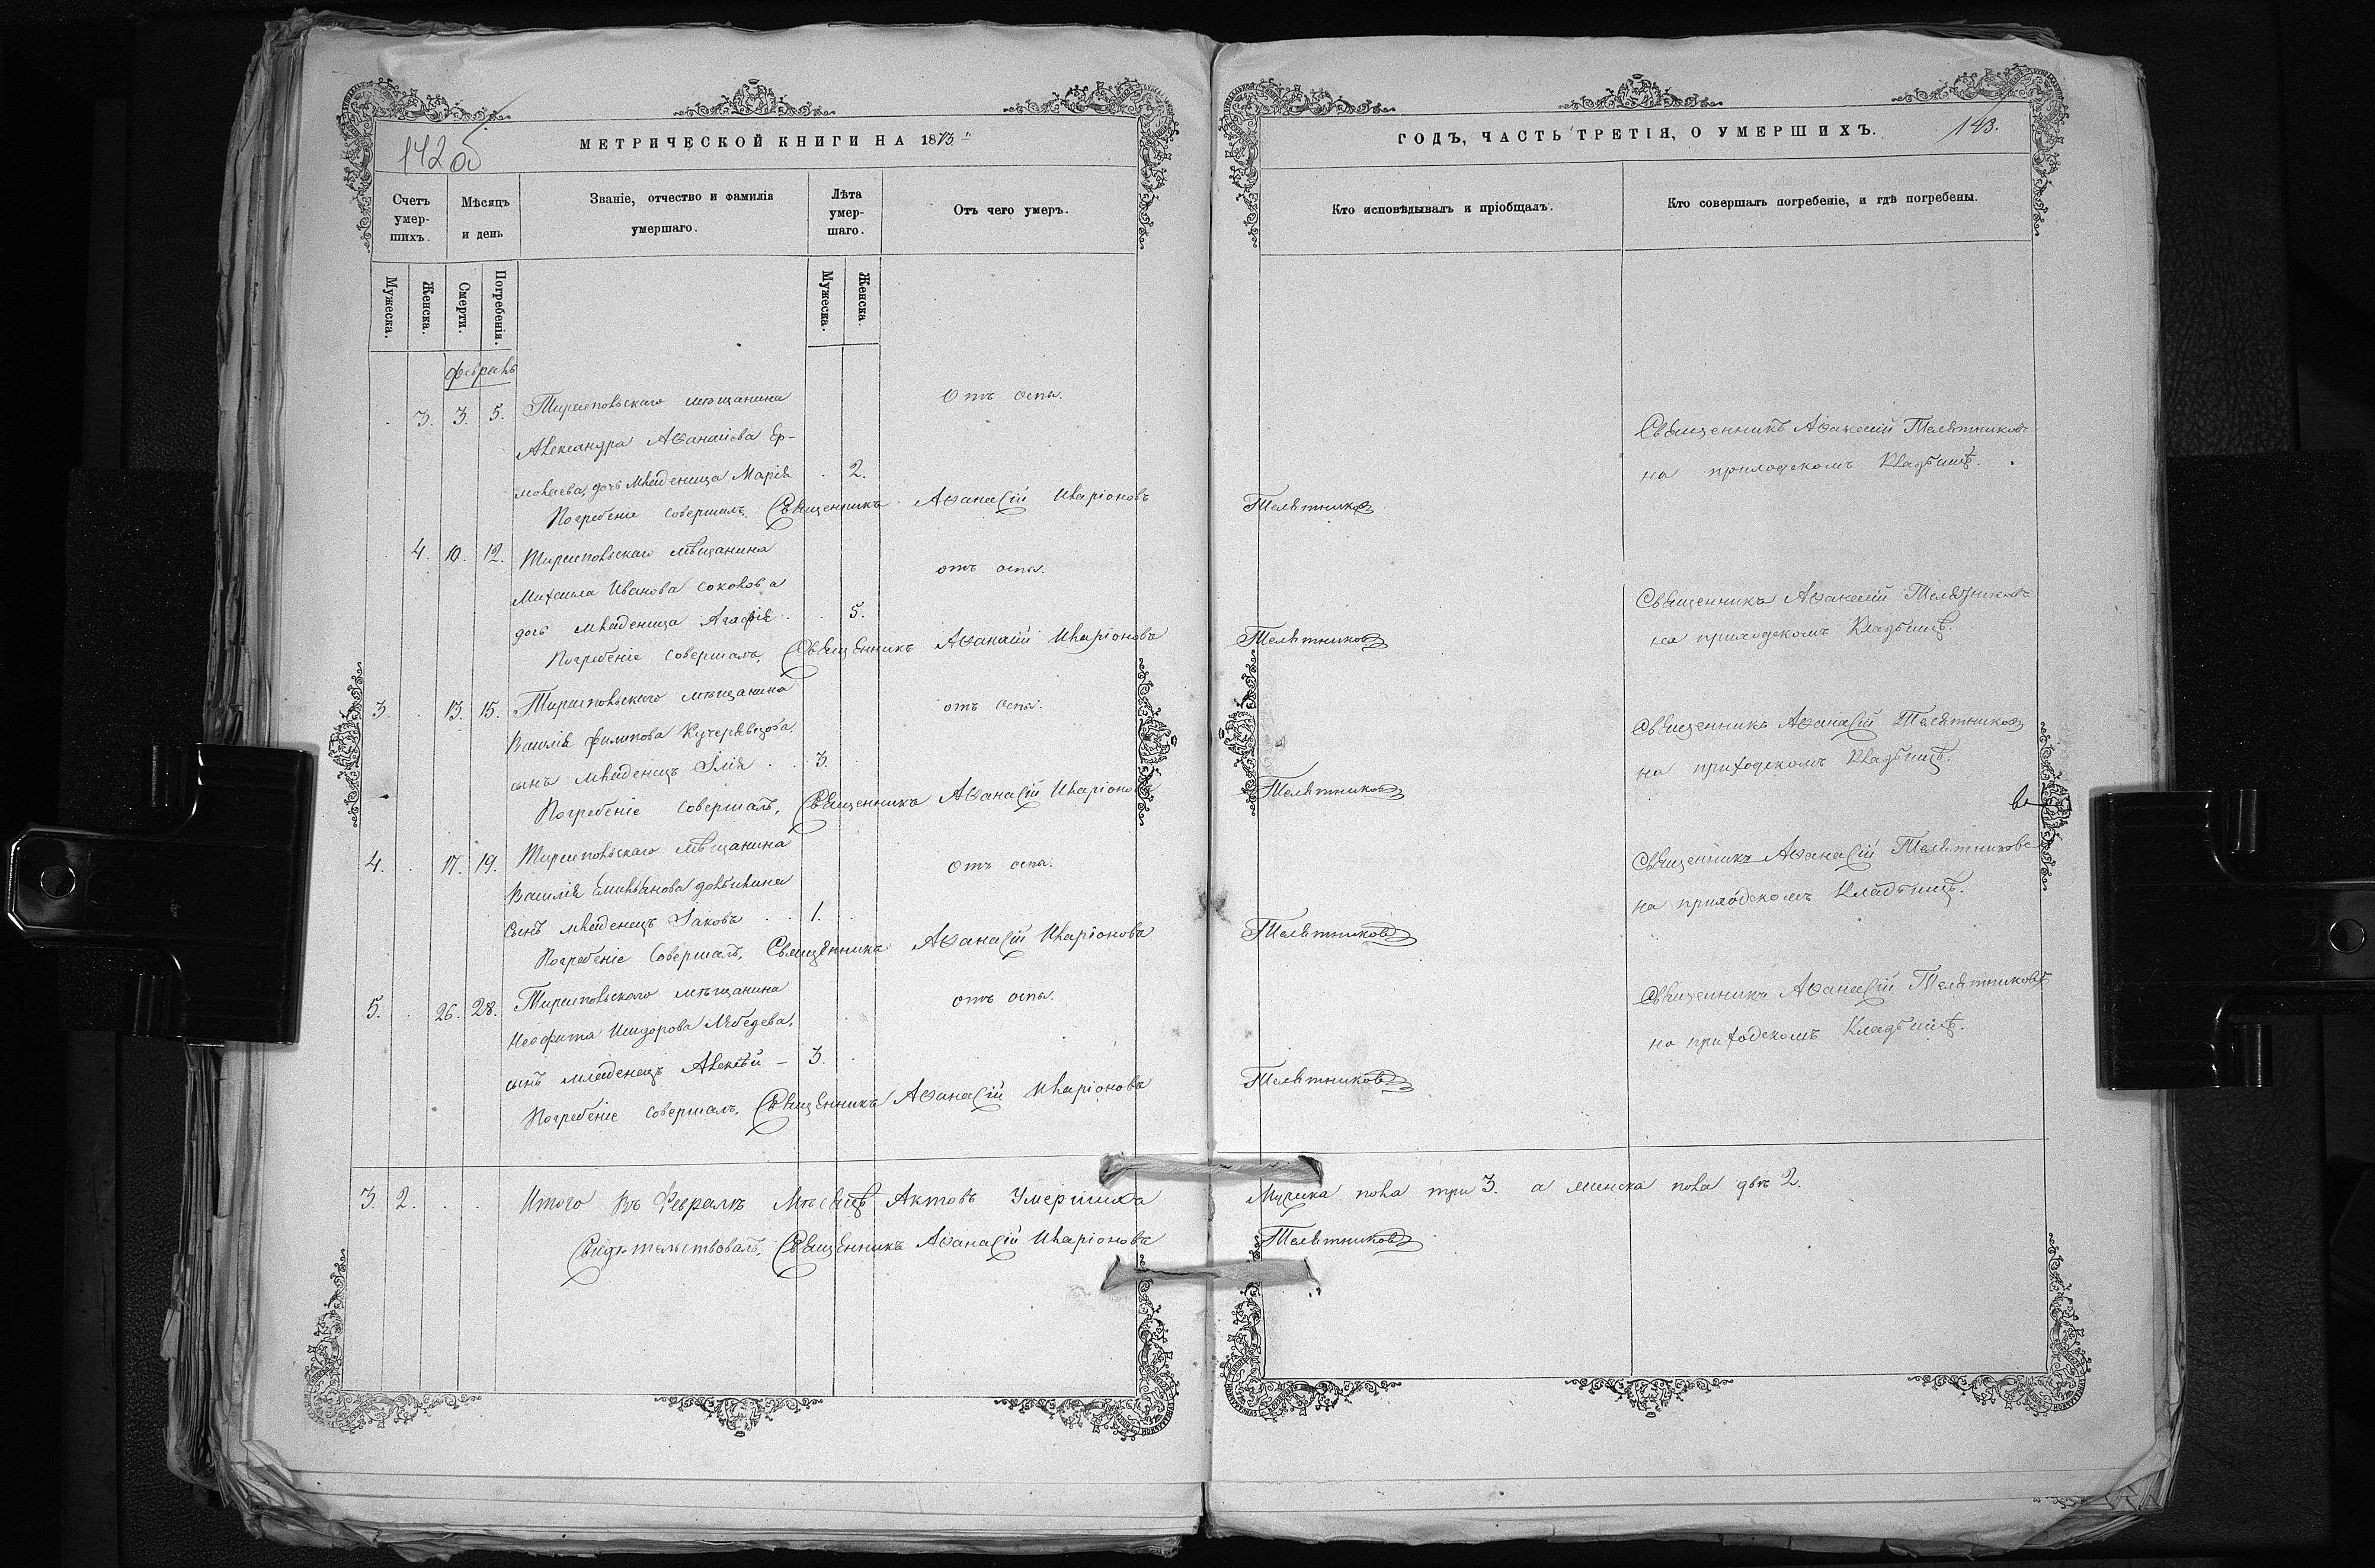 142 об
МЕТРИЧЕСКОЙ КНИГИ НА 1873
Счетъ умер- шихъ.
Мѣсяцъ и день
Званіе, отчество и фамилія умершаго.
Лѣта умер- шаго.
Отъ чего умеръ.
Мужеска.
Женска.
Смерти.
Погребенія.
Мужеска.
Женска.
февраль
3. 3. 5. Тирасповьскаго мѣщанина Отъ оспы.
Александра Аѳанасіева Ер-
молаева, дочь младеница Марія 2.
Погребеніе совершалъ, Священникъ Аѳанасій Иларіоновъ
4. 10. 12. Тирасповьскаго мѣщанина
Михаила Иванова Соколова отъ оспы.
дочь младеница Агафія 5.
Погребеніе совершалъ, Священникъ Аѳанасій Иларіоновъ
3. 13. 15. Тирасповьскаго мѣщанина отъ оспы.
Василія филипова
сынъ младенецъ Ілія 3.
Погребеніе совершалъ, Священникъ Аѳанасій Иларіоновъ
4. 17. 19. Тирасповьскаго мѣщанина Отъ оспы.
Василія
сынъ младенецъ Іаковъ 1.
Погребеніе совершалъ, Священникъ Аѳанасій Иларіоновъ
5. 26. 28. Тирасповьскаго мѣщанина отъ оспы.
Неофита Исидорова Лебедева,
сынъ младенецъ Алексѣй — 3.
Погребеніе совершалъ, Священникъ Аѳанасій Иларіоновъ
3. 2. Итого Въ Февралѣ Мѣсяцѣ Актовъ Умершихъ
Свидѣтельствовалъ, Священникъ Аѳанасій Иларіоновъ
ГОДЪ, ЧАСТЬ ТРЕТІЯ, О УМЕРШИХЪ.
143.
Кто исповѣдывалъ и пріобщалъ.
Кто совершалъ погребеніе, и гдѣ погребены.
Священникъ Аѳанасій Телятниковъ
на приходскомъ Кладбищѣ.
Телятниковъ
Священникъ Аѳанасій Телятниковъ
на приходскомъ Кладбищѣ.
Телятниковъ
Священникъ Аѳанасій Телятниковъ
на приходскомъ Кладбищѣ.
Телятниковъ
Священникъ Аѳанасій Телятниковъ
на приходскомъ Кладбищѣ.
Телятниковъ
Священникъ Аѳанасій Телятниковъ
на приходскомъ Кладбищѣ.
Телятниковъ
Мужска пола три 3. а женска пола двѣ 2.
Телятниковъ